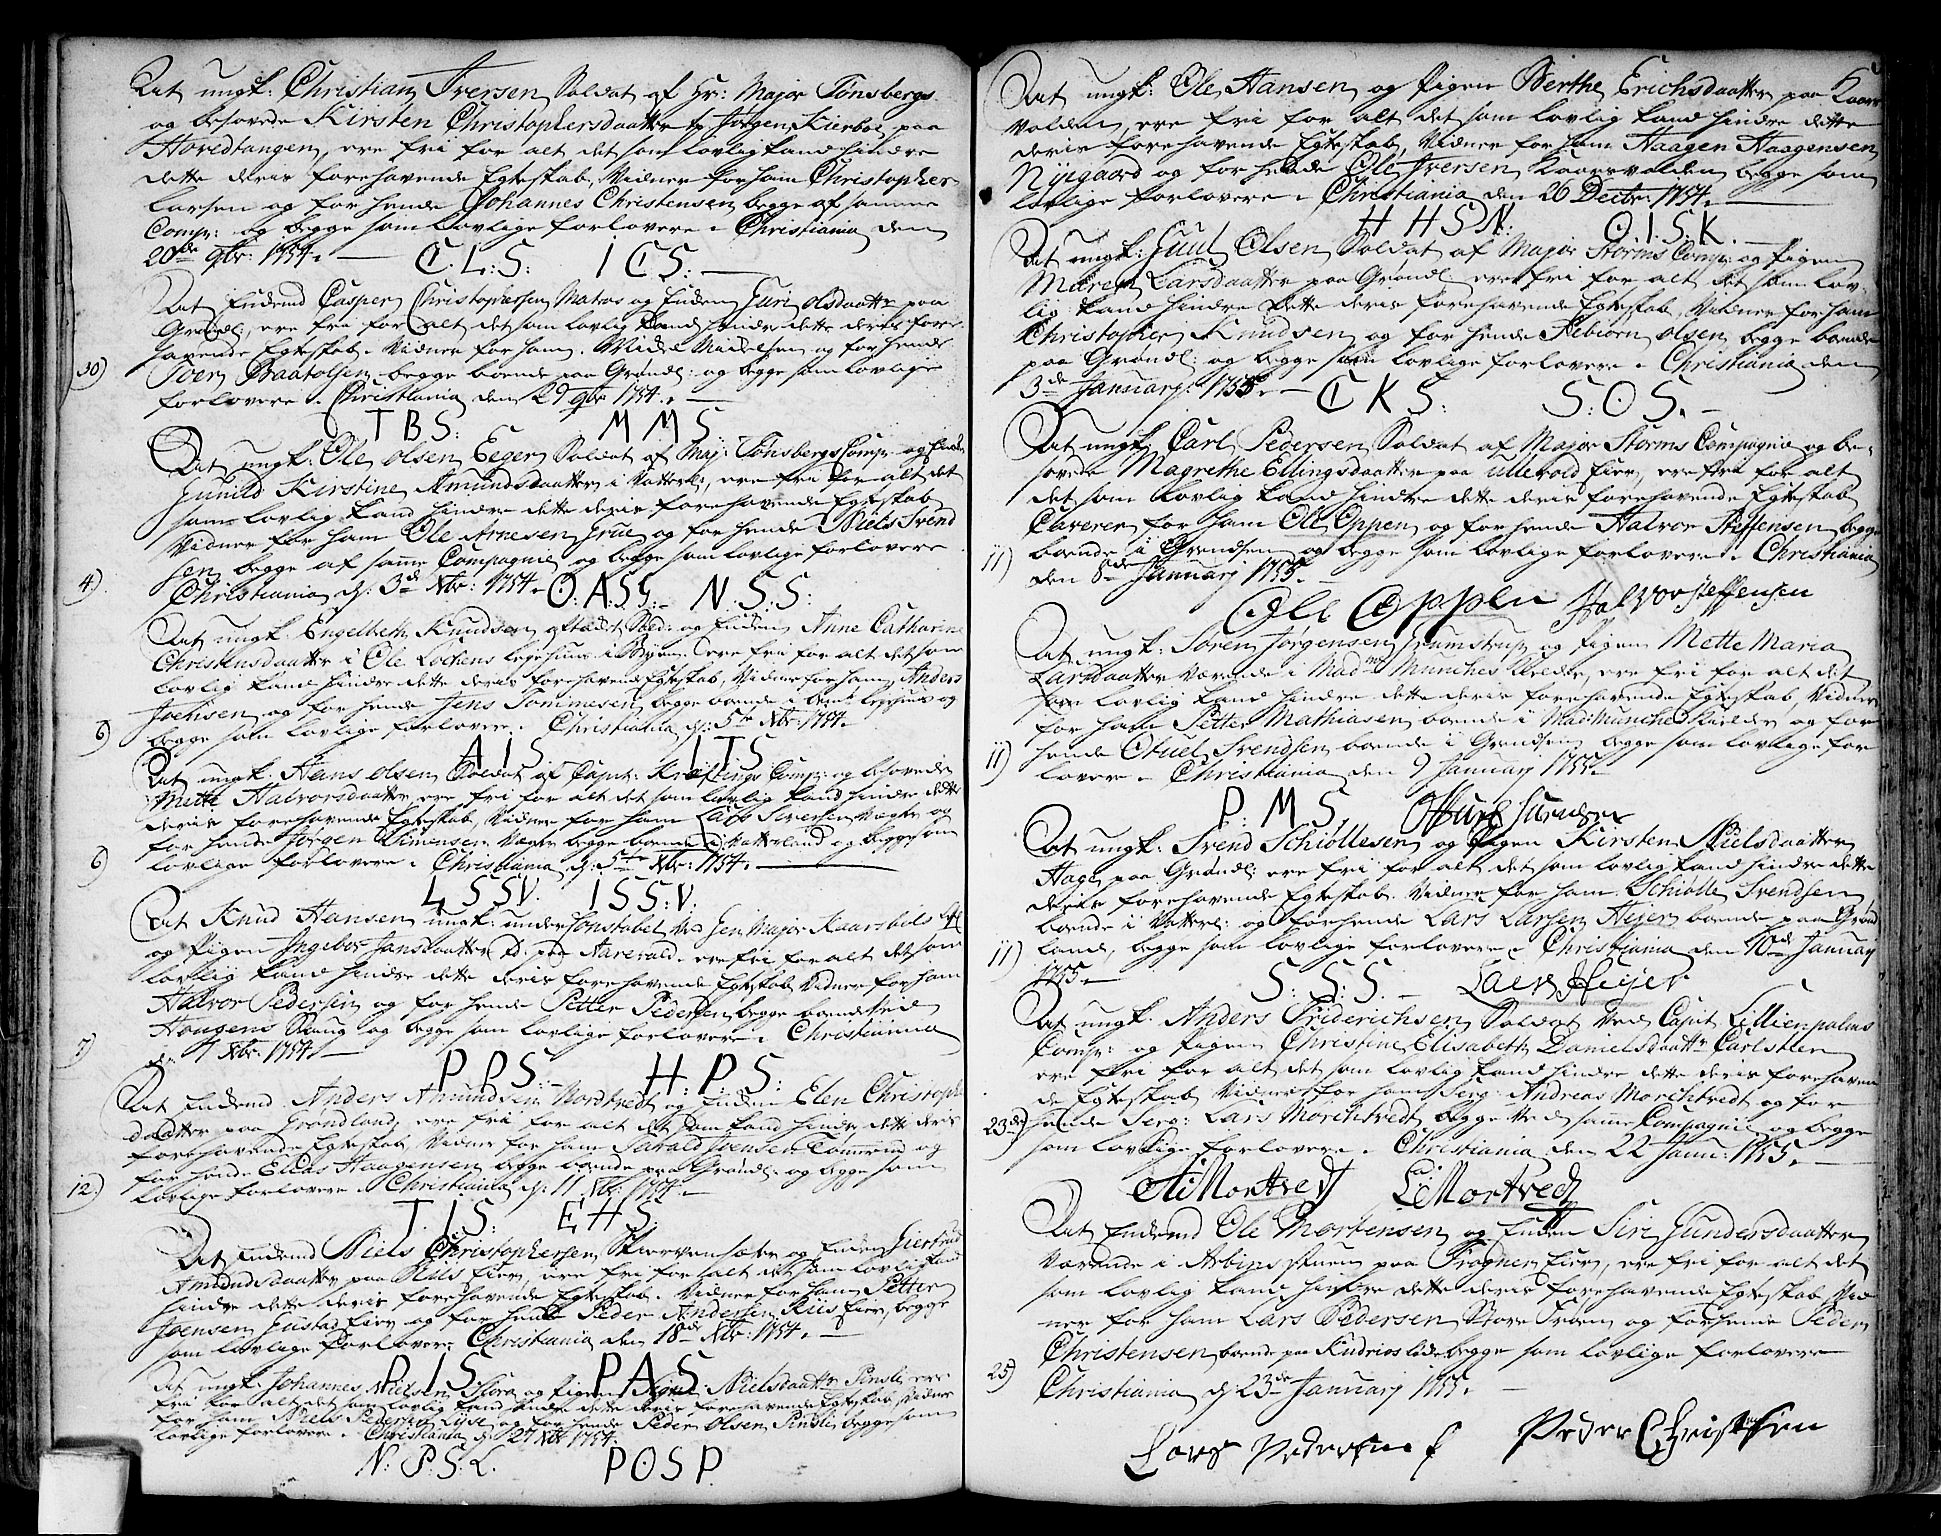 Dat ungk: Christian Iversen Soldat af Hr: Major Tønsbergs
og besovede Kirsten Christophersdaatter Jørgen Kierboe paa
Hovedtangen, ere fri for alt det som lovlig kand hindre
dette deris forehavende Egteskab, Vidner for ham Christopher
Larsen og for hende Johannes Christensen begge af samme
Comp: og begge som lovlige forlovere. Christiania den
20de 9br: 1754.
C.L:S: ICS:
Dat Enkemd Casper Christophersen Matros og Enken Guri Olsdaatter paa
Grønl:, ere fri for alt det som lovlig kand hindre dette deris fore
havende Egteskab. Vidner for ham
og for hende
30) Iver Baarolsen begge boende paa Grønl: og begge som lovlige
forlovere. Christiania den 29 9br 1754.
TBS: MMS
Dat ungk: Ole Olsen Eeger Soldat af Maj: Tønsbergs Comp: og Enken
Gunild Kirstine Amundsdaatter i Vatterl:, ere fri for alt det
som lovlig kand hindre dette deris forehavende Egteskab
Vidner for ham Ole Arnesen Grue og for hende Niels Svend
sen begge af samme Compagnie og begge som lovlige forlovere
4) Christiania d: 3de Xbr: 1754.
O:A:SG: N:S:S:
Dat ungk. Engelbreth Knudsen og Enken Anne Catharine
Christensdaatter i Ole Lochens i Byen ere fri for alt det som
lovlig kand hindre dette deris forehavende Egteskab, Vidner for ham Anders
Jochsen og for hende Jens Tommesen begge boende i og
6) begge som lovlige forlovere. Christiania d: 5te Xbr 1754.
AIS ITS
Dat ungk. Hans Olsen Soldat af Capit: Kreftings Comp: og besovede
Mette Halvorsdaatter ere fri for alt det som lovlig kand hindre dette
deris forehavende Egteskab, Vidner for ham Lars Siversen Vægter og
for hende Jørgen Simensen Vægter begge boende i Vatterland og begge som
6) lovlige forlovere. Christiania d: 5te Xbr: 1754.
LSSV. ISS:V:
Dat Knud Hansen ungk: under Constabel ved Gen Major Kaarsbils
og Pigen Ingebor Jansdaatter paa Aarevold. ere fri for alt det som
lovlig kand hindre dette deris forehavende Egteskab Vidner for ham
Halvor Pedersen og for hende Petter Pedersen begge boende ved
Hougens Skaug og begge som lovlige forlovere. Christiania
7) d: 7 Xbr: 1754
PPS: H:PS:
Dat Enkemd Anders Amundsen Nordtvedt og Enken Elen Christoph
daatter paa Grønland, ere fri for alt det som kand hindre dette deris
forehavende Egteskab, Vidner for ham Joensen og
for hende Elias Haagensen begge boende paa Grønl: og begge som
12) lovlige forlovere. Christiania d: 11 Xbr: 1754.
T.IS: EHS
Dat Enkemd Niels Christophersen og Enken Giertrud
Amundsdaatter paa Riis Eier, ere fri for alt det som lovlig kand
hindre dette deris forehavende Egteskab. Vidner for ham Petter
Joensen Gustad Eier og for hende Peder Andersen Riis Eier, begge
som lovlige forlovere Christiania den 18de Xbr: 1754.
PIS PAS
Dat ungk. Johannes Nielsen og Pigen Nielsdaatter ere
fri for alt det som lovlig kand hindre dette deris forehavende Egteskab, Vidner
for ham Niels Pedersen og for hende Peder Olsen begge som
lovlige forlovere. Christiania d: 27 Xbr 1754.
N:P:S:L. POSP
Dat ungk: Ole Hansen og Pigen Berthe Erichsdaatter paa Kaars
Volden, ere fri for alt det som lovlig kand hindre dette
deris forehavende Egteskab, Vidner for ham Haagen Haagensen
Nyegaard og for hende Ole Iversen Kaarsvolden begge som
lovlige forlovere. Christiania den 26 Decbr: 1754.
HHSN: O.I.S.K.
Dat ungk: Guul Olsen Soldat af Major Storms Comp: og Pigen
Maren Larsdaatter paa Grønl: ere fri for alt det som lov-
lig kand hindre dette deris forehavende Egteskab, Vidner for ham
Christopher Knudsen og for hende Olsen begge boende
paa Grønl: og begge som lovlige forlovere. Christiania den
3de Januarj: 1755.
CKS: S:OS.
Dat ungk: Carl Pedersen Soldat af Major Storms Compagnie og be-
sovede Magrethe Ellingsdaatter paa Ullevold Eier, ere fri for alt
det som lovlig kand hindre dette deris forehavende Egteskab
Caverer for ham Ole Oppen og for hende Halvor Steffensen begge
11) boende i Grendsen og begge som lovlige forlovere. Christiania
den 8de Januarj 1755.
Ole Oppen Halvor Steffensen
Dat ungk: Søren Jørgensen Grumstrup og Pigen Mette Maria
Larsdaatter værende i Madme Munches, ere fri for alt det
som lovlig kand hindre dette deris forehavende Egteskab, Vidner
for ham Petter Mathiasen boende i Mad: Munches og for
11) hende Svendsen boende i Grendsen begge som lovlige for
lovere. Christiania den 9 Januarj 1755.
P:M:S
Dat ungk: Svend Schiøllesen og Pigen Kirsten Nielsdaatter
Hage paa Grønl: ere fri for alt det som lovlig kand hindre dette
deris forehavende Egteskab. Vidner for ham Schiølle Svendsen
boende i Vatterl: og for hende Lars Larsen Heier boende paa Grøn
11) land, begge som lovlige forlovere. Christiania den 10de Januarj
1755.
S:S:S. Laers Heijer
Dat ungk. Anders Friderichsen Soldat ved Capit. Lillienpalms
Comp: og Pigen Christine Elisabeth Danielsdaatter Carlsteen
ere fri for alt det som lovlig kand hindre dette deris forehaven
de Egteskab Vidner for ham Serg: Andreas Morchtvedt og for
23de) hende Serg: Lars Morchtvedt begge ved samme Compagnie og begge
som lovlige forlovere. Christiania den 22 Janu: 1755.
AMortvedt LMortvedt
Dat Enkemd Ole Mortensen og Enken Siri Gundersdaatter
værende i Arbins stuen paa Frogner Eier, ere fri for alt det
som lovlig kand hindre dette deris forehavende Egteskab, Vid
ner for ham Lars Pedersen Store Froen og for hende Peder
Christensen boende paa begge som lovlige forlovere
25) Christiania d: 23de Januarj 1755.
Lars Pedersen Peder Christensen